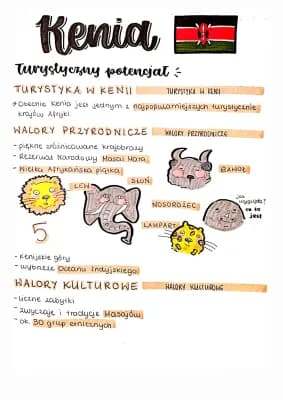 Kenia
Turystyczny potencjał :-
TURYSTYKA W KENII TURYSTYKA W KENII
→ Obecnie Kenia jest jednym z najpopularniejszych turystycznie
krajów Afryki.
WALORY PRZYRODNICZE WALORY PRZYRODNICZE
- piękne zróżnicowane krajobrazy
- Rezerwat Narodowy Masai Mara
- Wielka Afrykańska piątka
BAWÓŁ
LEW SŁOŃ
NOSOROŻEC
jak wygląda?
co to jest
LAMPART
5
- Kenijskie góry
- wybrzeże Oceanu Indyjskiego
WALORY KULTUROWE WALORY KULTUROWE
- liczne zabytki
- zwyczaje i tradycje Masajów
- ok. 30 grup etnicznych